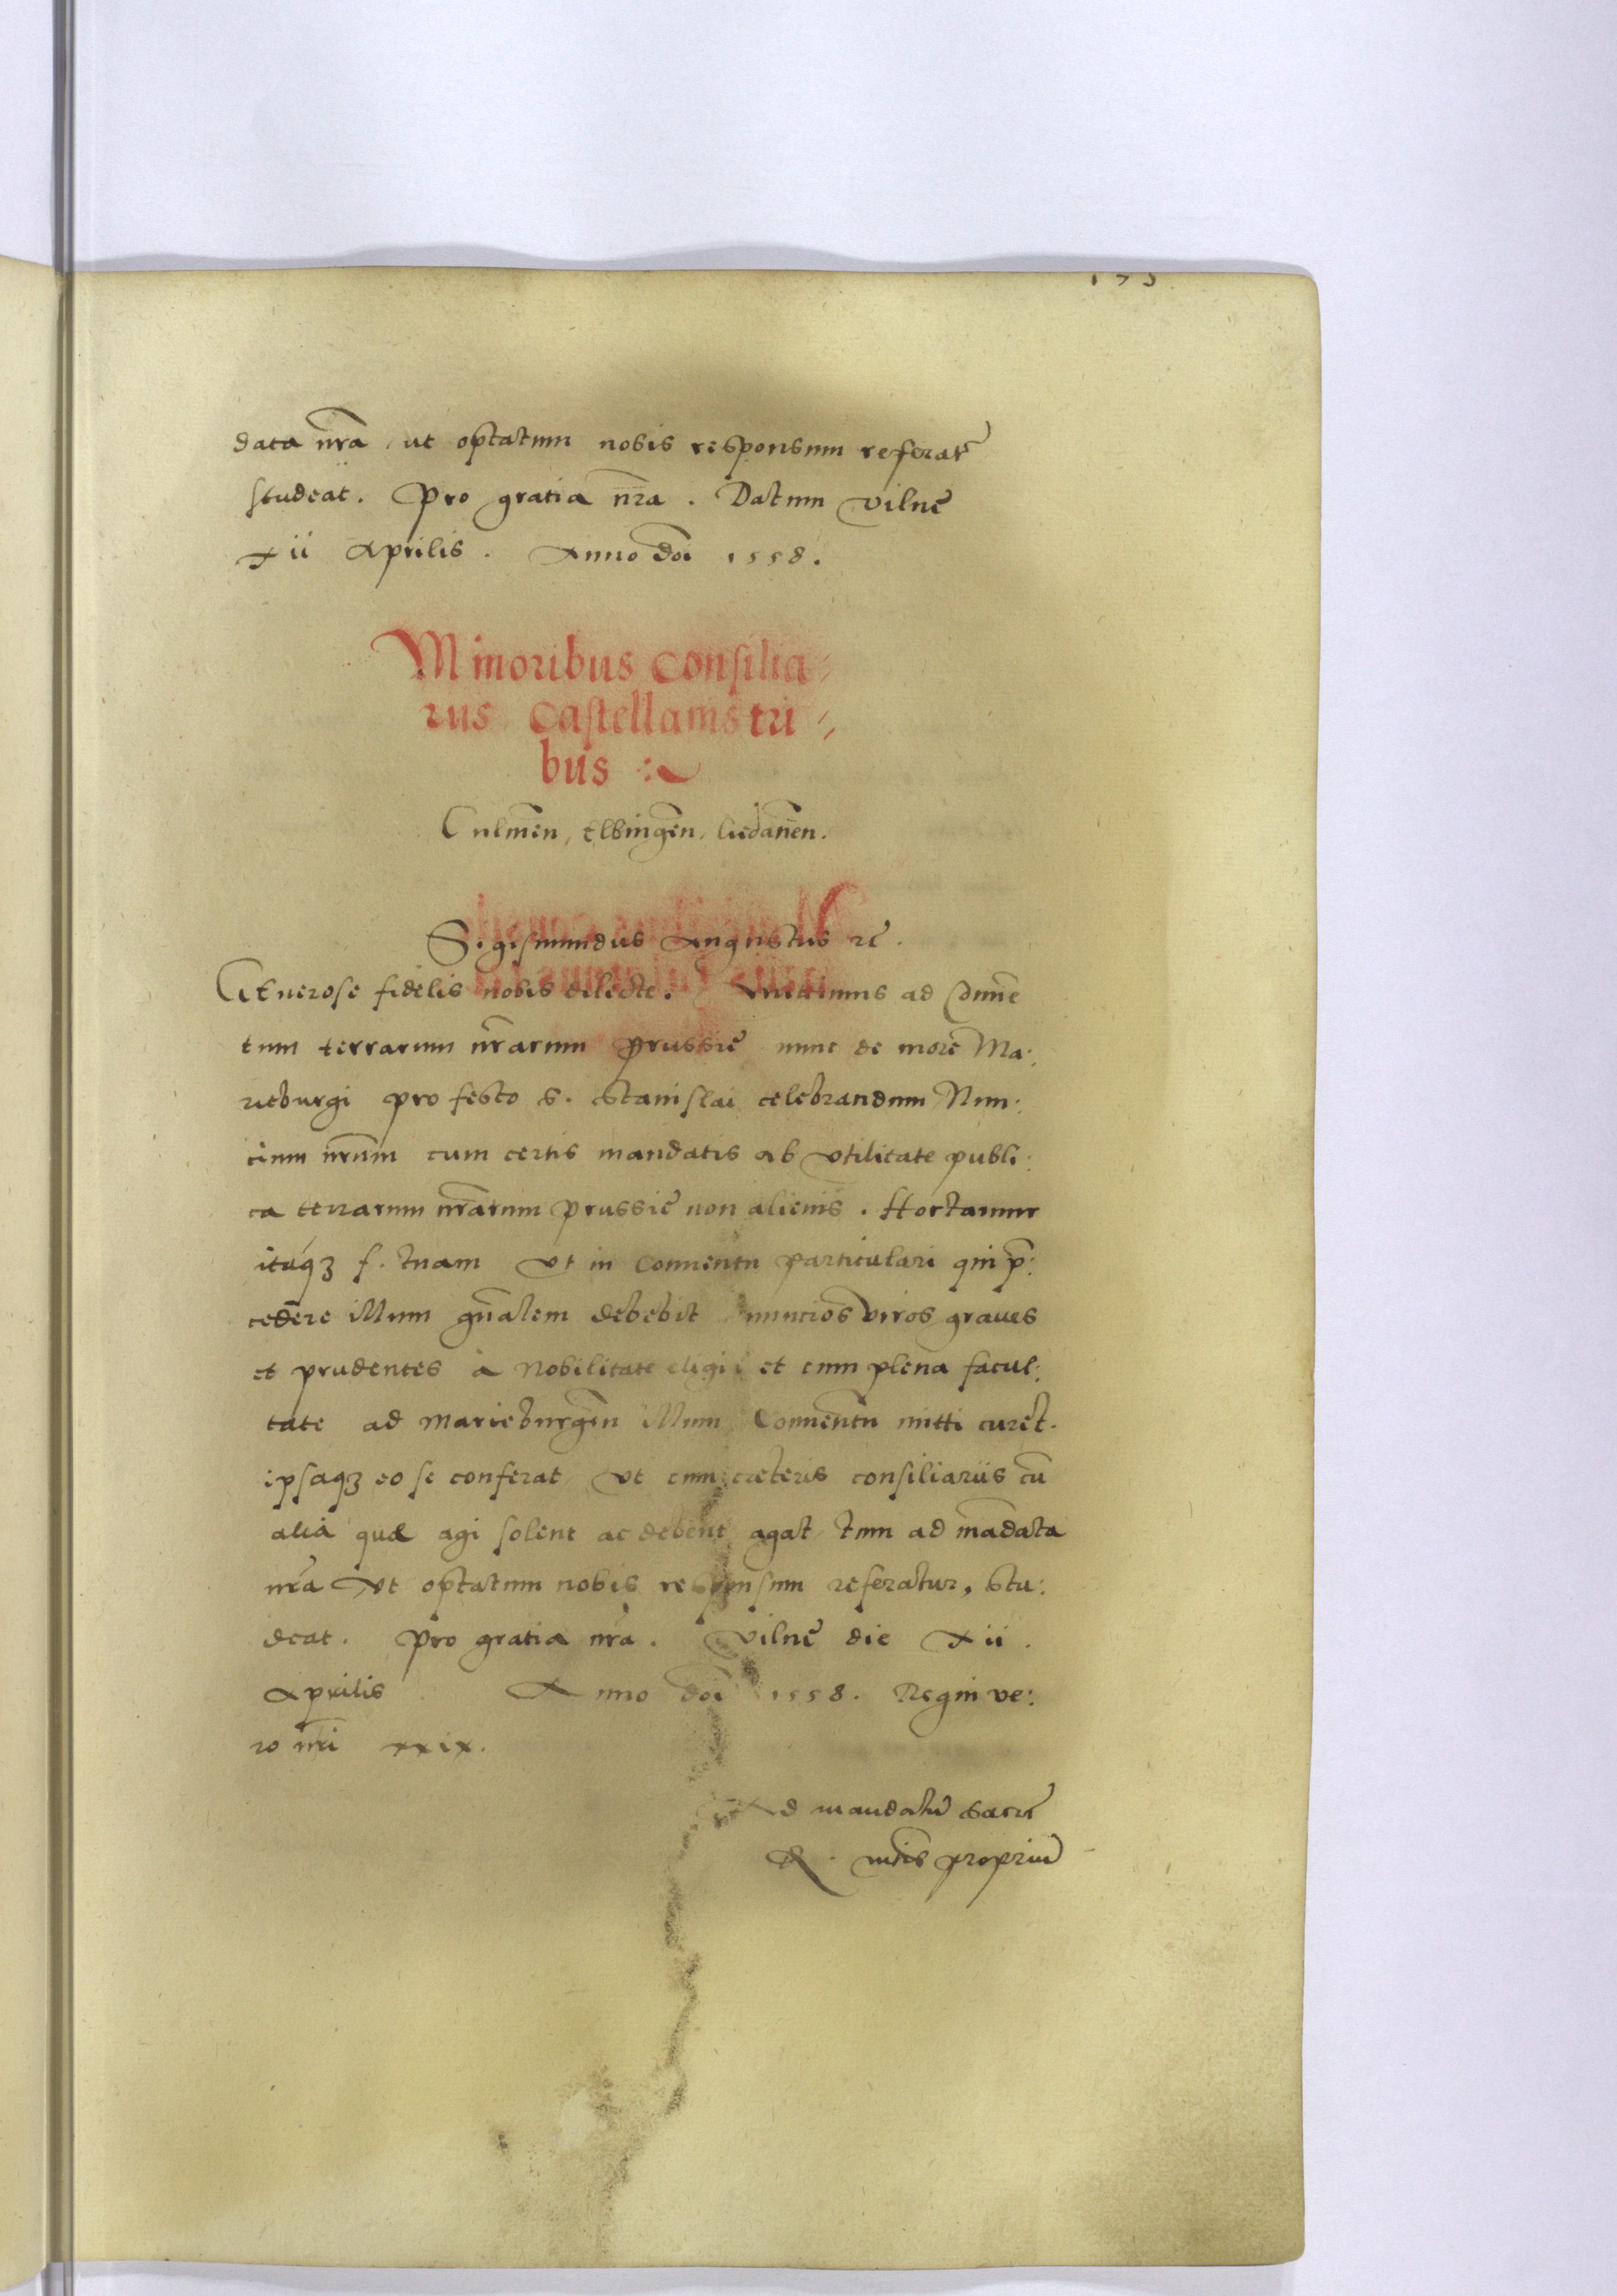 data nr̃a ut optatum nobis responsum referat̃
studeat. Pro gratia nr̃a. Datum Vilnę
xii Aprilis. Anno doi 1558.
Minoribus Consilia
riis Castellanis tri
bus
Culmeñ, Elbingeñ, Gedaneñ.
Sigismundus Augustus rẽ.
Generose fidelis nobis dilecte. Mittimus ad Conuẽ
tum terrarum nr̃arum Prussię nunc de more Ma:
rieburgi pro festo S. Stanislai celebrandum Nun:
cium nr̃um cum certis mandatis ab Vtilitate publi:
ca terrarum nr̃arum Prussię non alienis. Hortamur
itaqꝫ f. tuam Vt in Conuentu particulari qui p̃:
cedere illum gñalem debebit nuncios Viros graues
et prudentes à Nobilitate eligi et cum plena facul:
tate ad Marieburgeñ illum Conuentũ mitti curet.
ipsaqꝫ eo se conferat Vt cum cæteris consiliariis cũ
alia quæ agi solent ac debent agat tum ad mãdata
nr̃a Vt optatum nobis responsum referatur, stu:
deat. Pro gratia nr̃a. Vilnę die xii.
Aprilis Anno doi 1558. Regni ve:
ro nr̃i xxix.
Ad mandatũ Sacrę
R. mtis propriũ